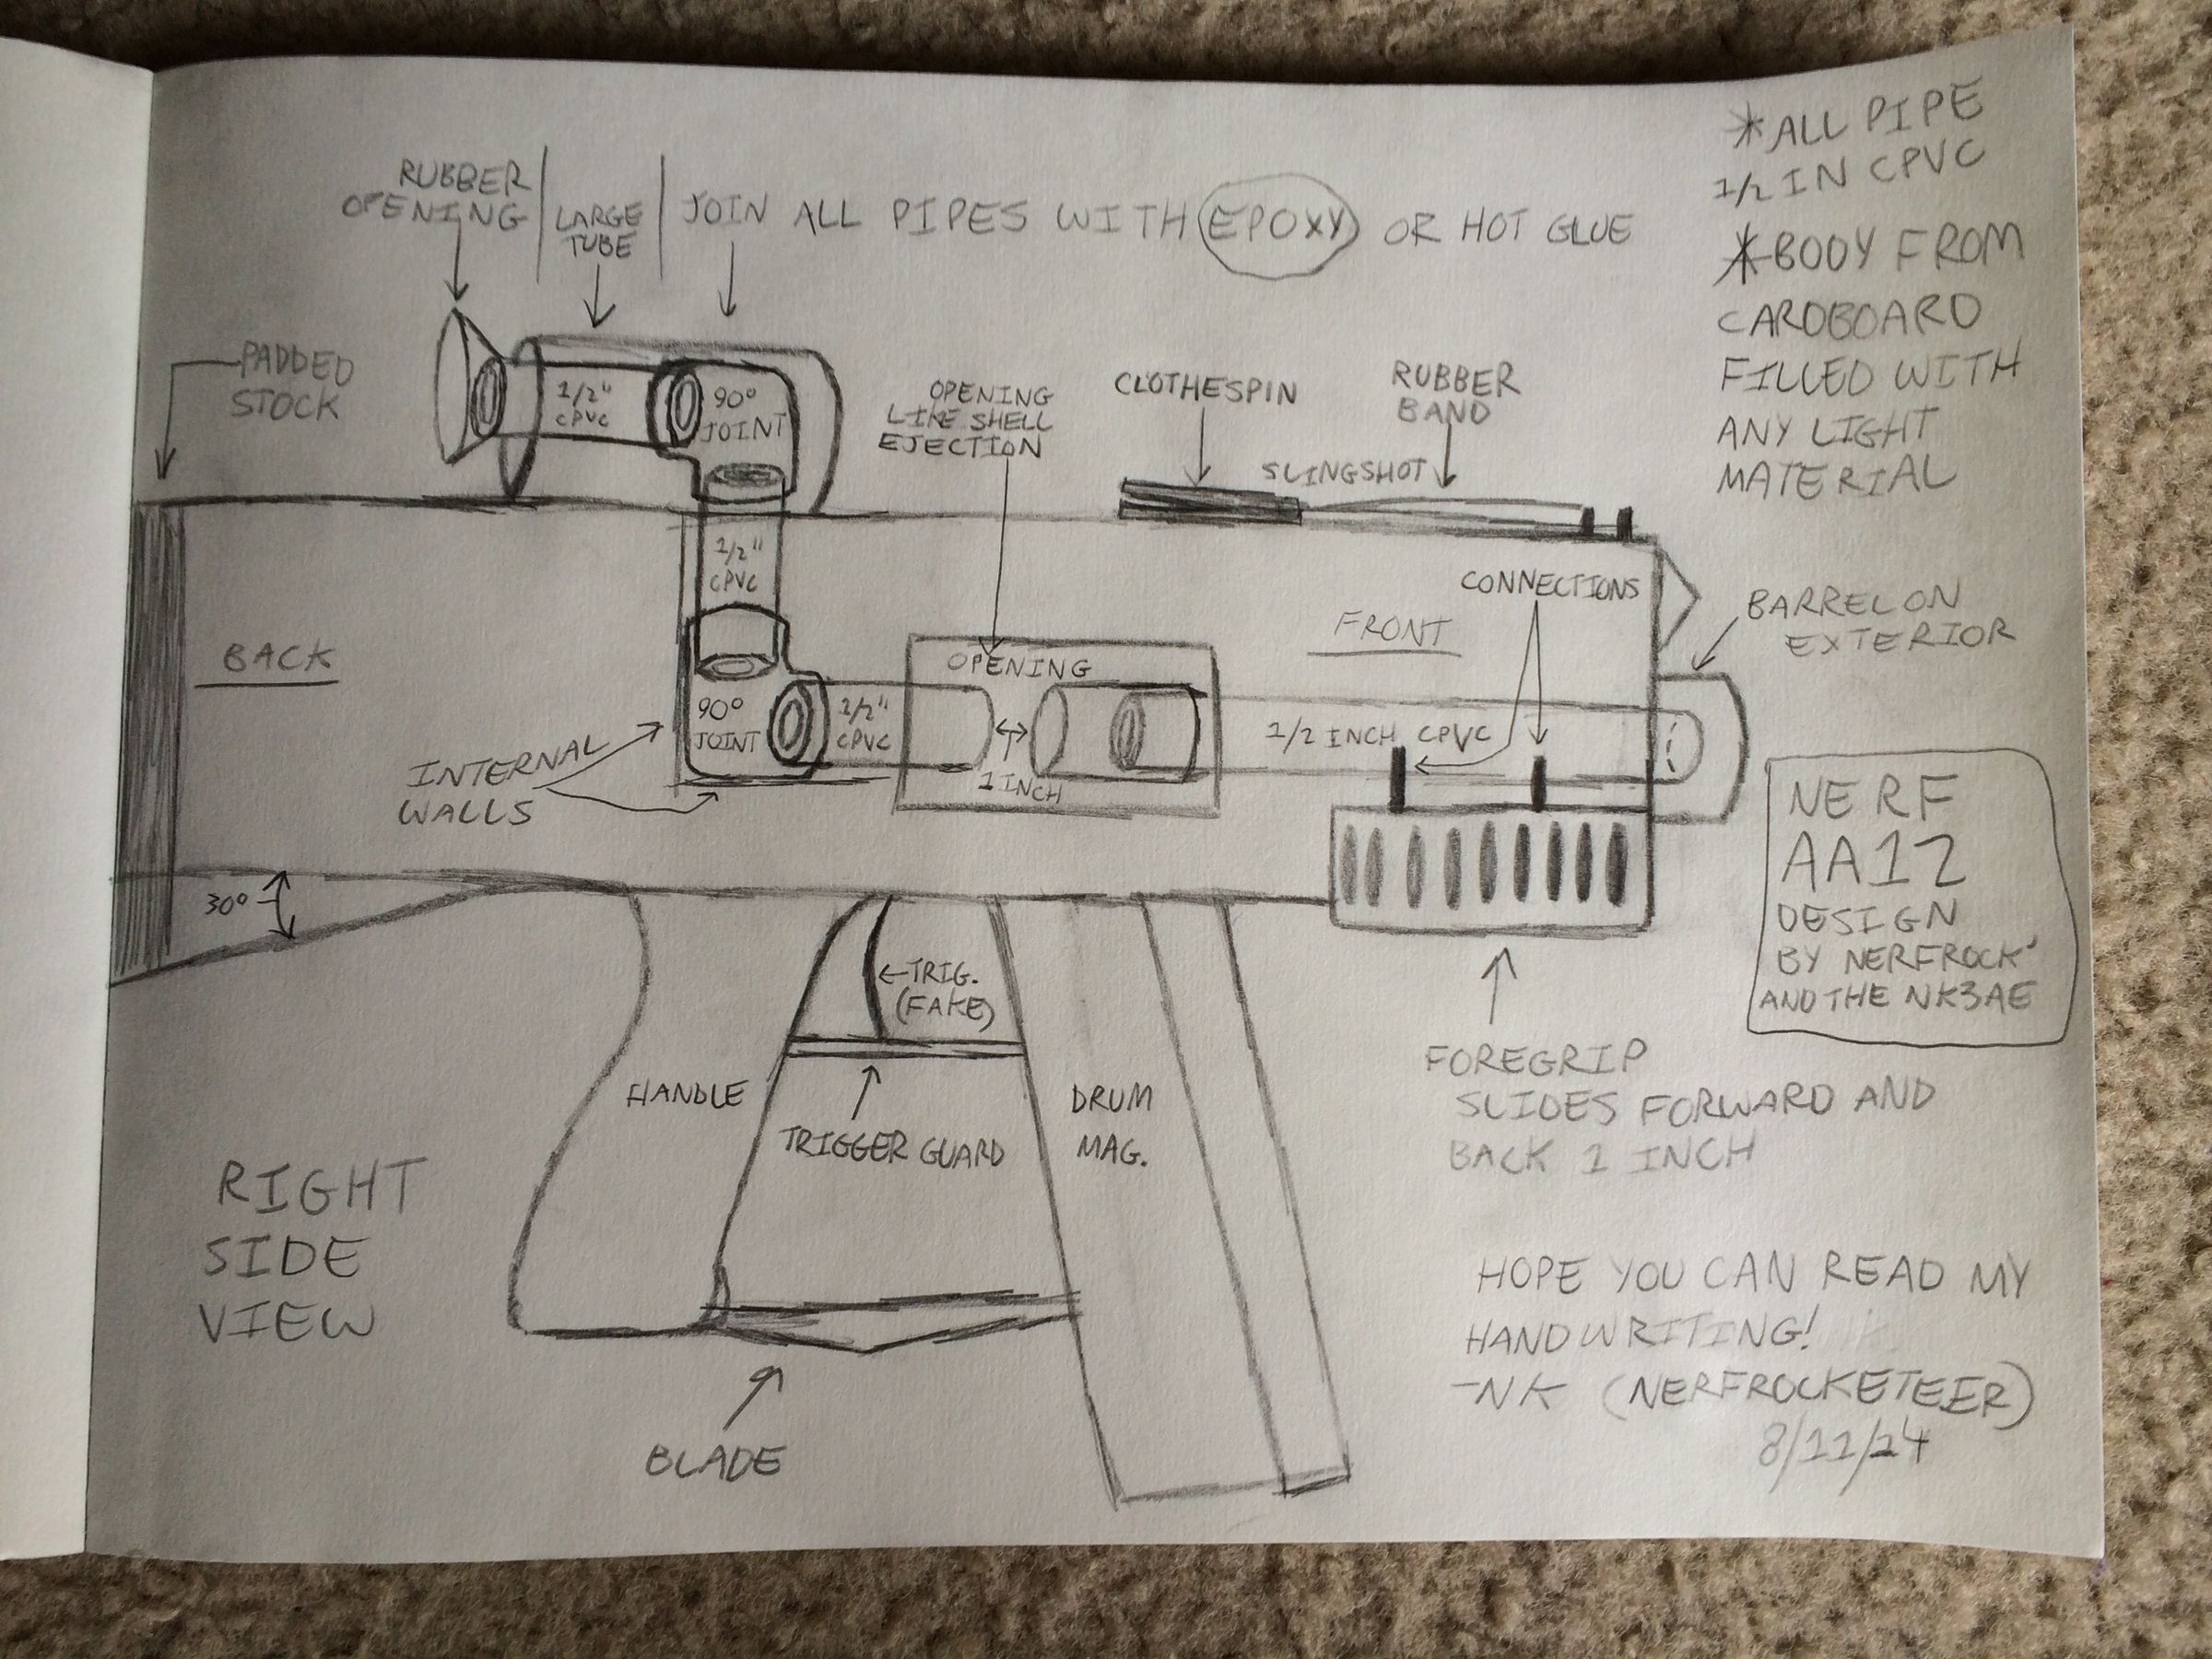 RUBBER
OPENING
LARGE
TUBE
JOIN ALL PIPES WITH EPOXY OR HOT GLUE
* ALL PIPE
1/2 IN CPVC
* BODY FROM
CARDBOARD
FILLED WITH
ANY LIGHT
MATERIAL
PADDED
STOCK
1/2"
CPVC
90°
JOINT
OPENING
LIKE SHELL
EJECTION
CLOTHESPIN
RUBBER
BAND
SLINGSHOT
1/2"
CPVC
CONNECTIONS
FRONT
BARREL ON
EXTERIOR
BACK
OPENING
90°
JOINT
1/2"
CPVC
1 INCH
1/2 INCH CPVC
INTERNAL
WALLS
30°
NERF
AA12
DESIGN
BY NERFROCK'
AND THE NK3AE
TRIG.
(FAKE)
HANDLE
TRIGGER GUARD
DRUM
MAG.
FOREGRIP
SLIDES FORWARD AND
BACK 1 INCH
RIGHT
SIDE
VIEW
BLADE
HOPE YOU CAN READ MY
HANDWRITING!
-NK (NERFROCKETEER)
8/12/24